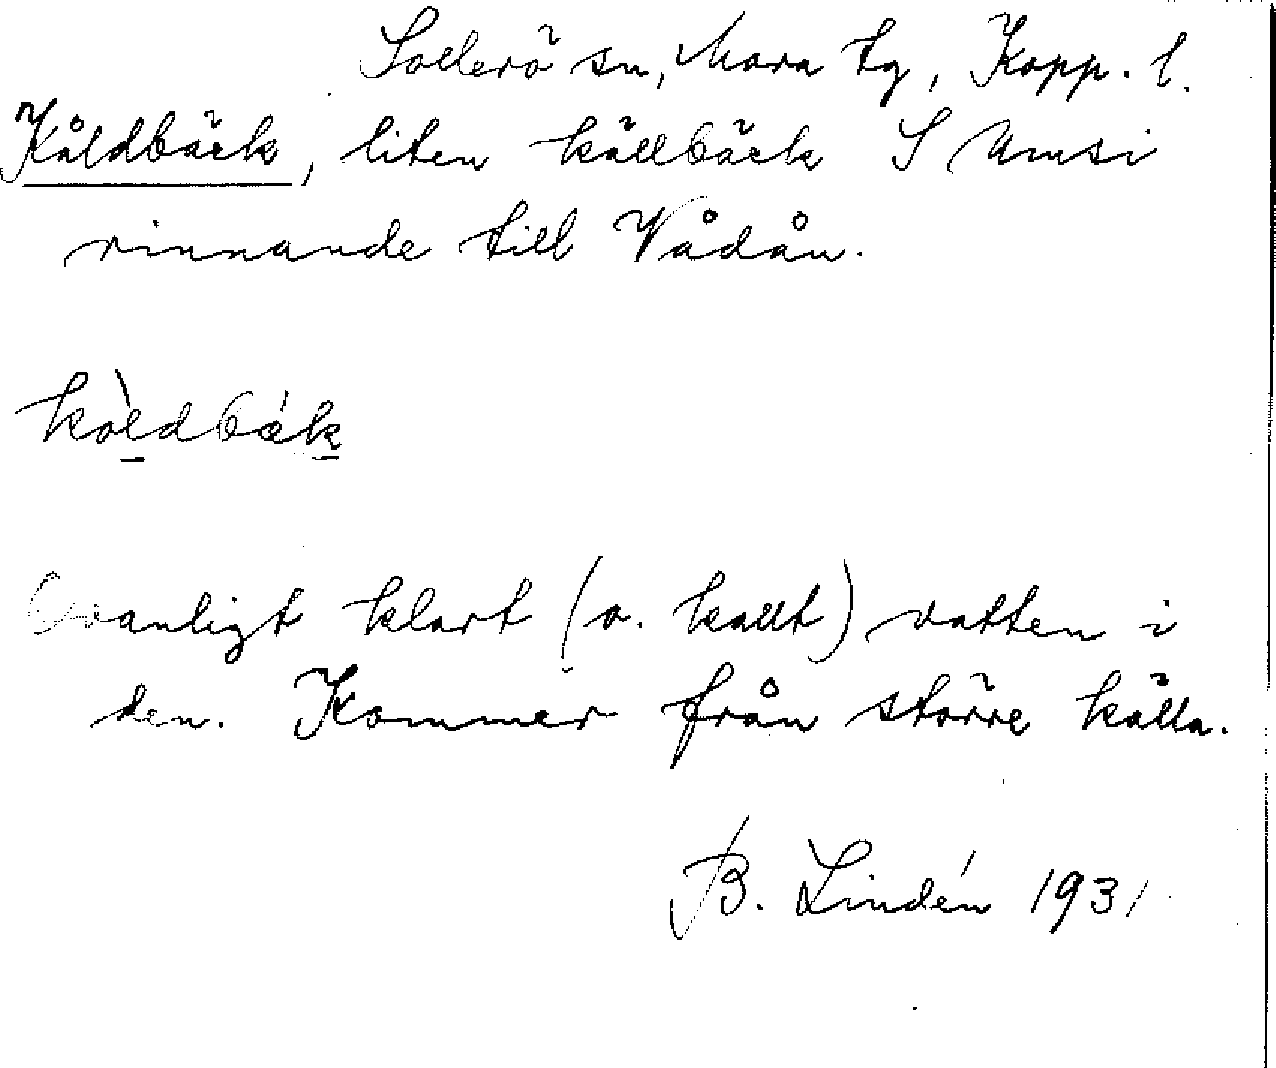 Sollerö sn, Mora tg, Kopp. l.
Kåldbäck, liten källbäck S Amsi
rinnande till Vådån.
kòldbák
Ovanligt klart (o. kallt) vatten i
den. Kommer från större källa.
B. Lindén 1931